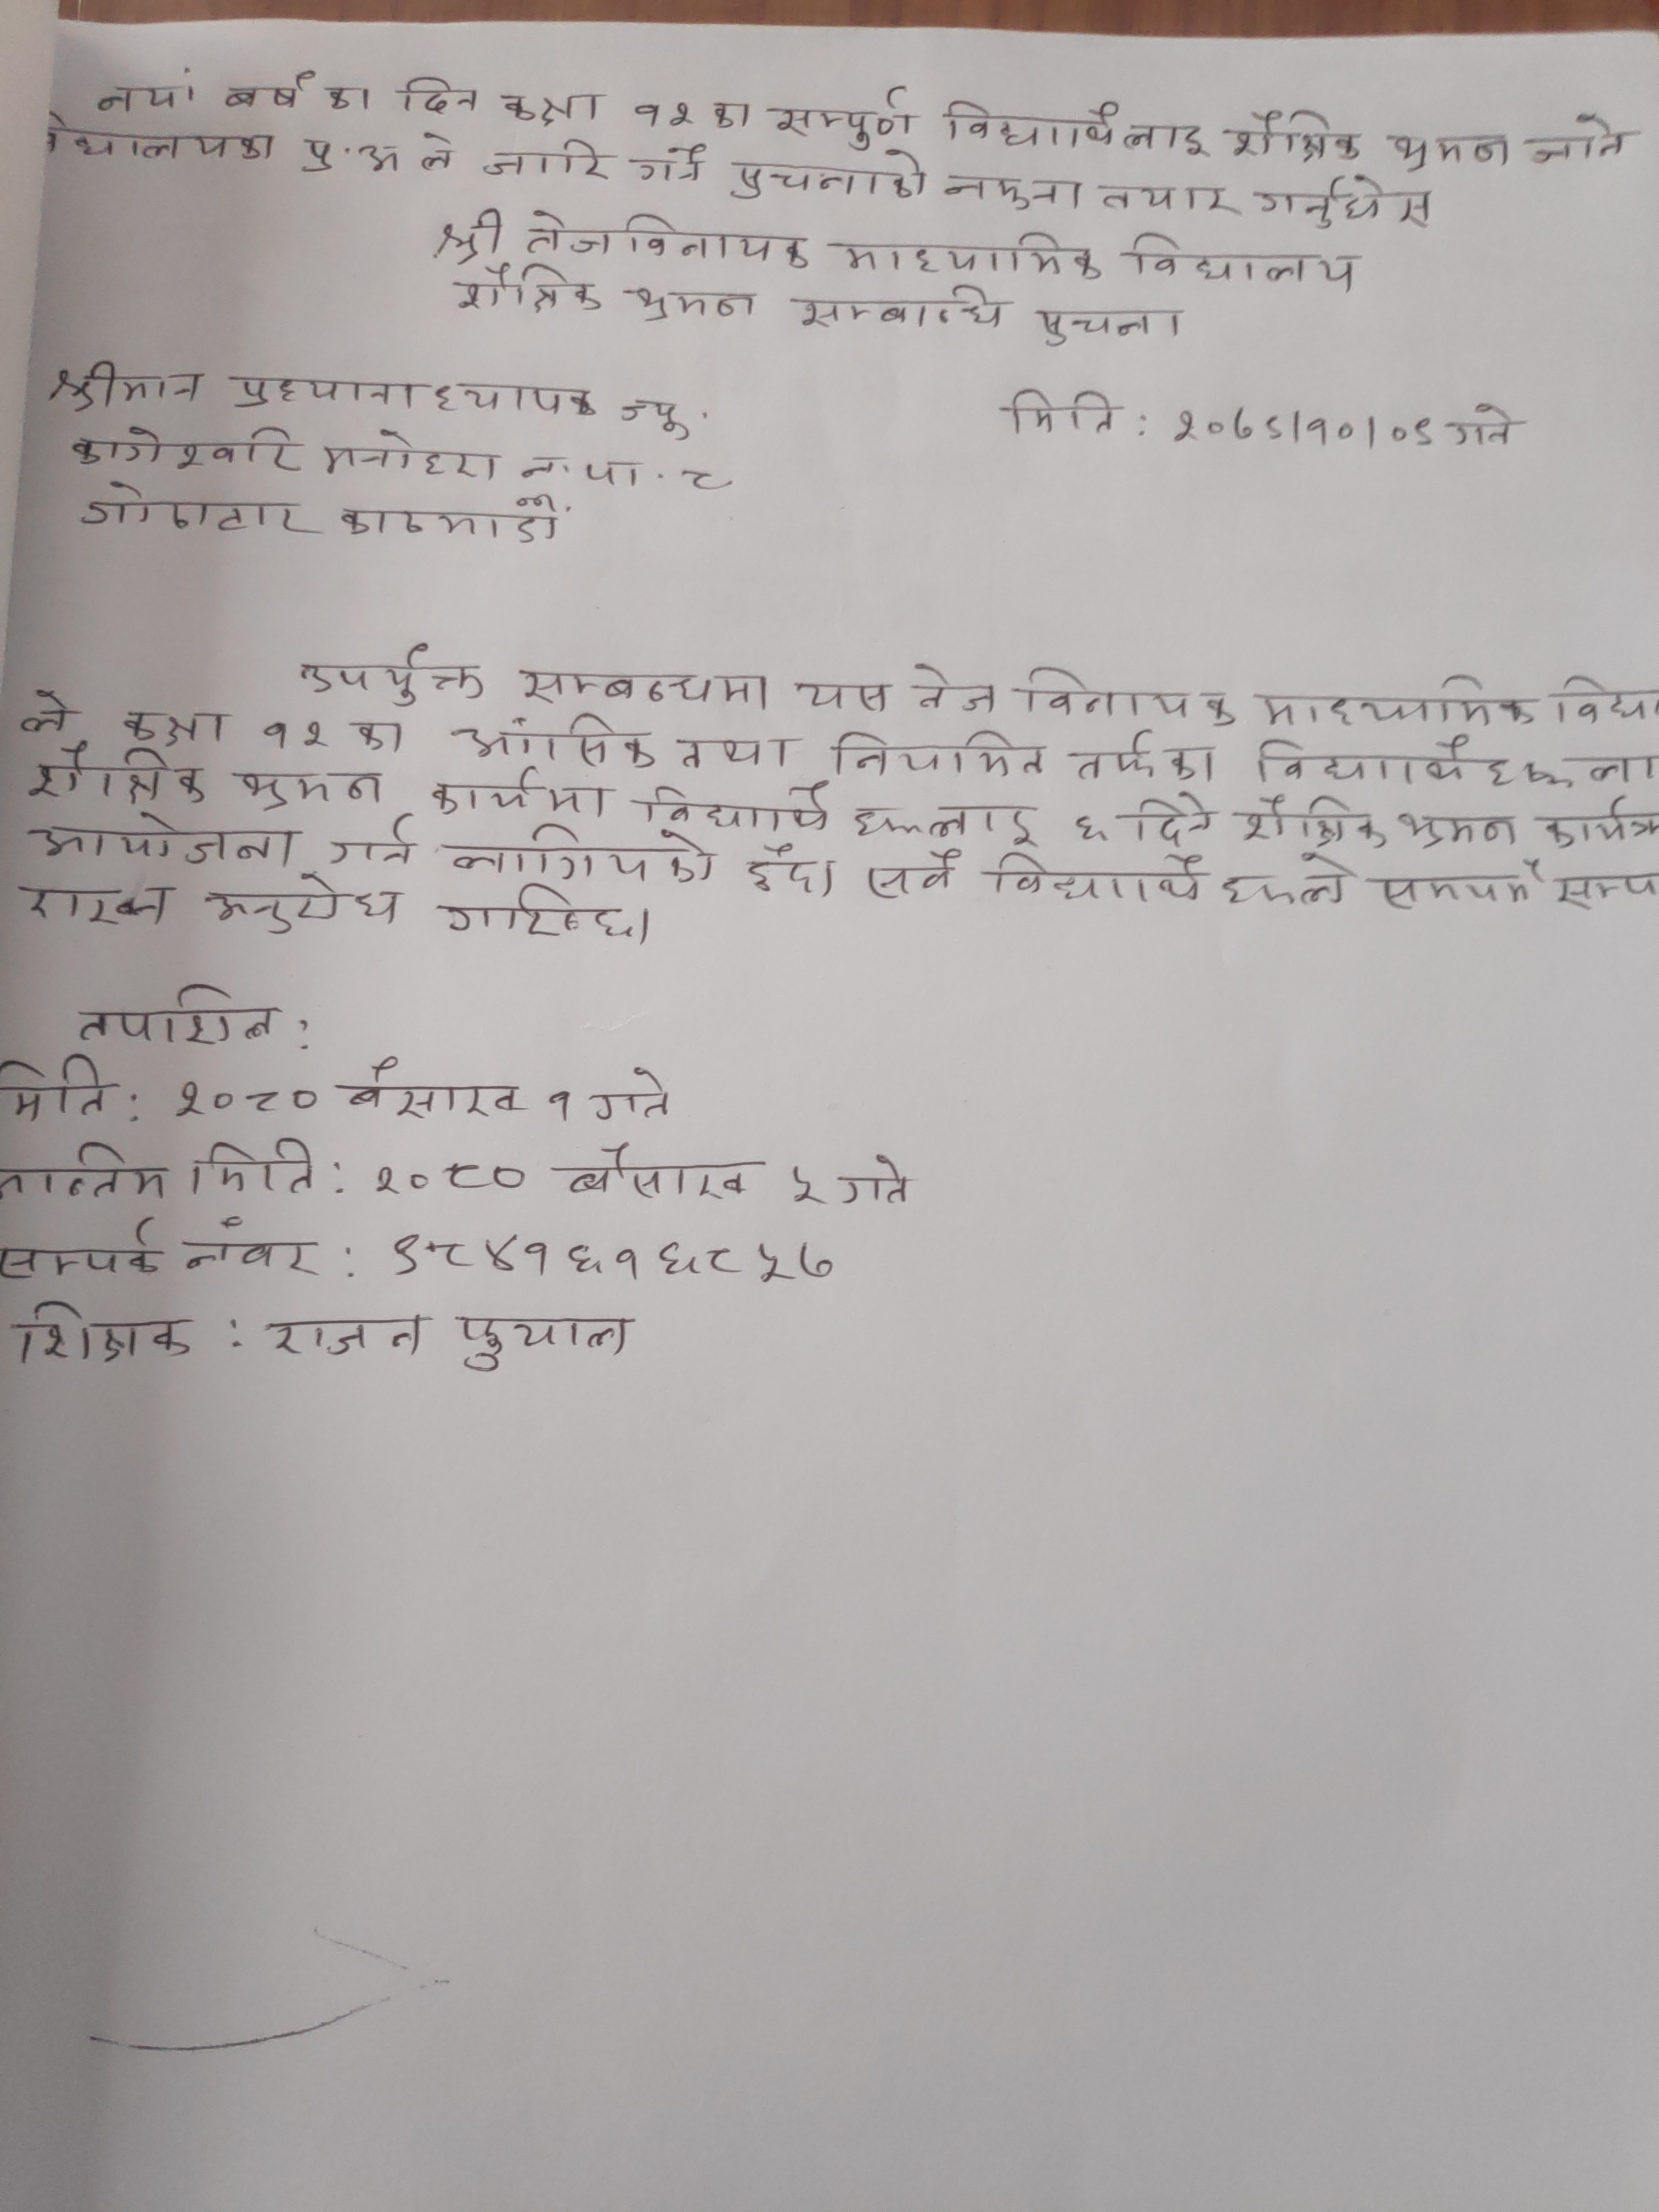 नयां बर्ष का दिन कक्षा १२ का सम्पुर्ण विद्यार्थिलाइ शैक्षिक भ्रमण जाने
विद्यालयका प्र.अ ले जारि गर्ने सुचनाको नमुना तयार गर्नुहोस
श्री तेजविनायक माध्यामिक विद्यालय
शैक्षिक भ्रमण सम्बान्धि सुचना
श्रीमान प्रध्यानाध्यापक ज्यू. मिति : २०७९।१०।०९ गते
कागेश्वरि मनोहरा न.पा.८
गोठाटार काठमाडौं
उपर्युक्त सम्बन्धमा यस तेज विनायक माध्यामिक विद्या
ले कक्षा १२ का आंसिक तथा नियामित तर्फका विद्यार्थिहरूला
शैक्षिक भ्रमण कार्यमा विद्यार्थि हरूलाइ ६ दिने शैक्षिक भ्रमण कार्यक्र
आयोजना गर्न लागियको हुँदा सर्वै विद्यार्थि हरूले समयमै सम्प
राख्न अनुरोध गारिन्छ।
तपाशिल :
मिति : २०८० बैसाख १ गते
अन्तिम मिति : २०८० बैसाख ५ गते
सम्पर्क नंवर : ९८४१६१६८५७
शिक्षक : राजन फुयाल